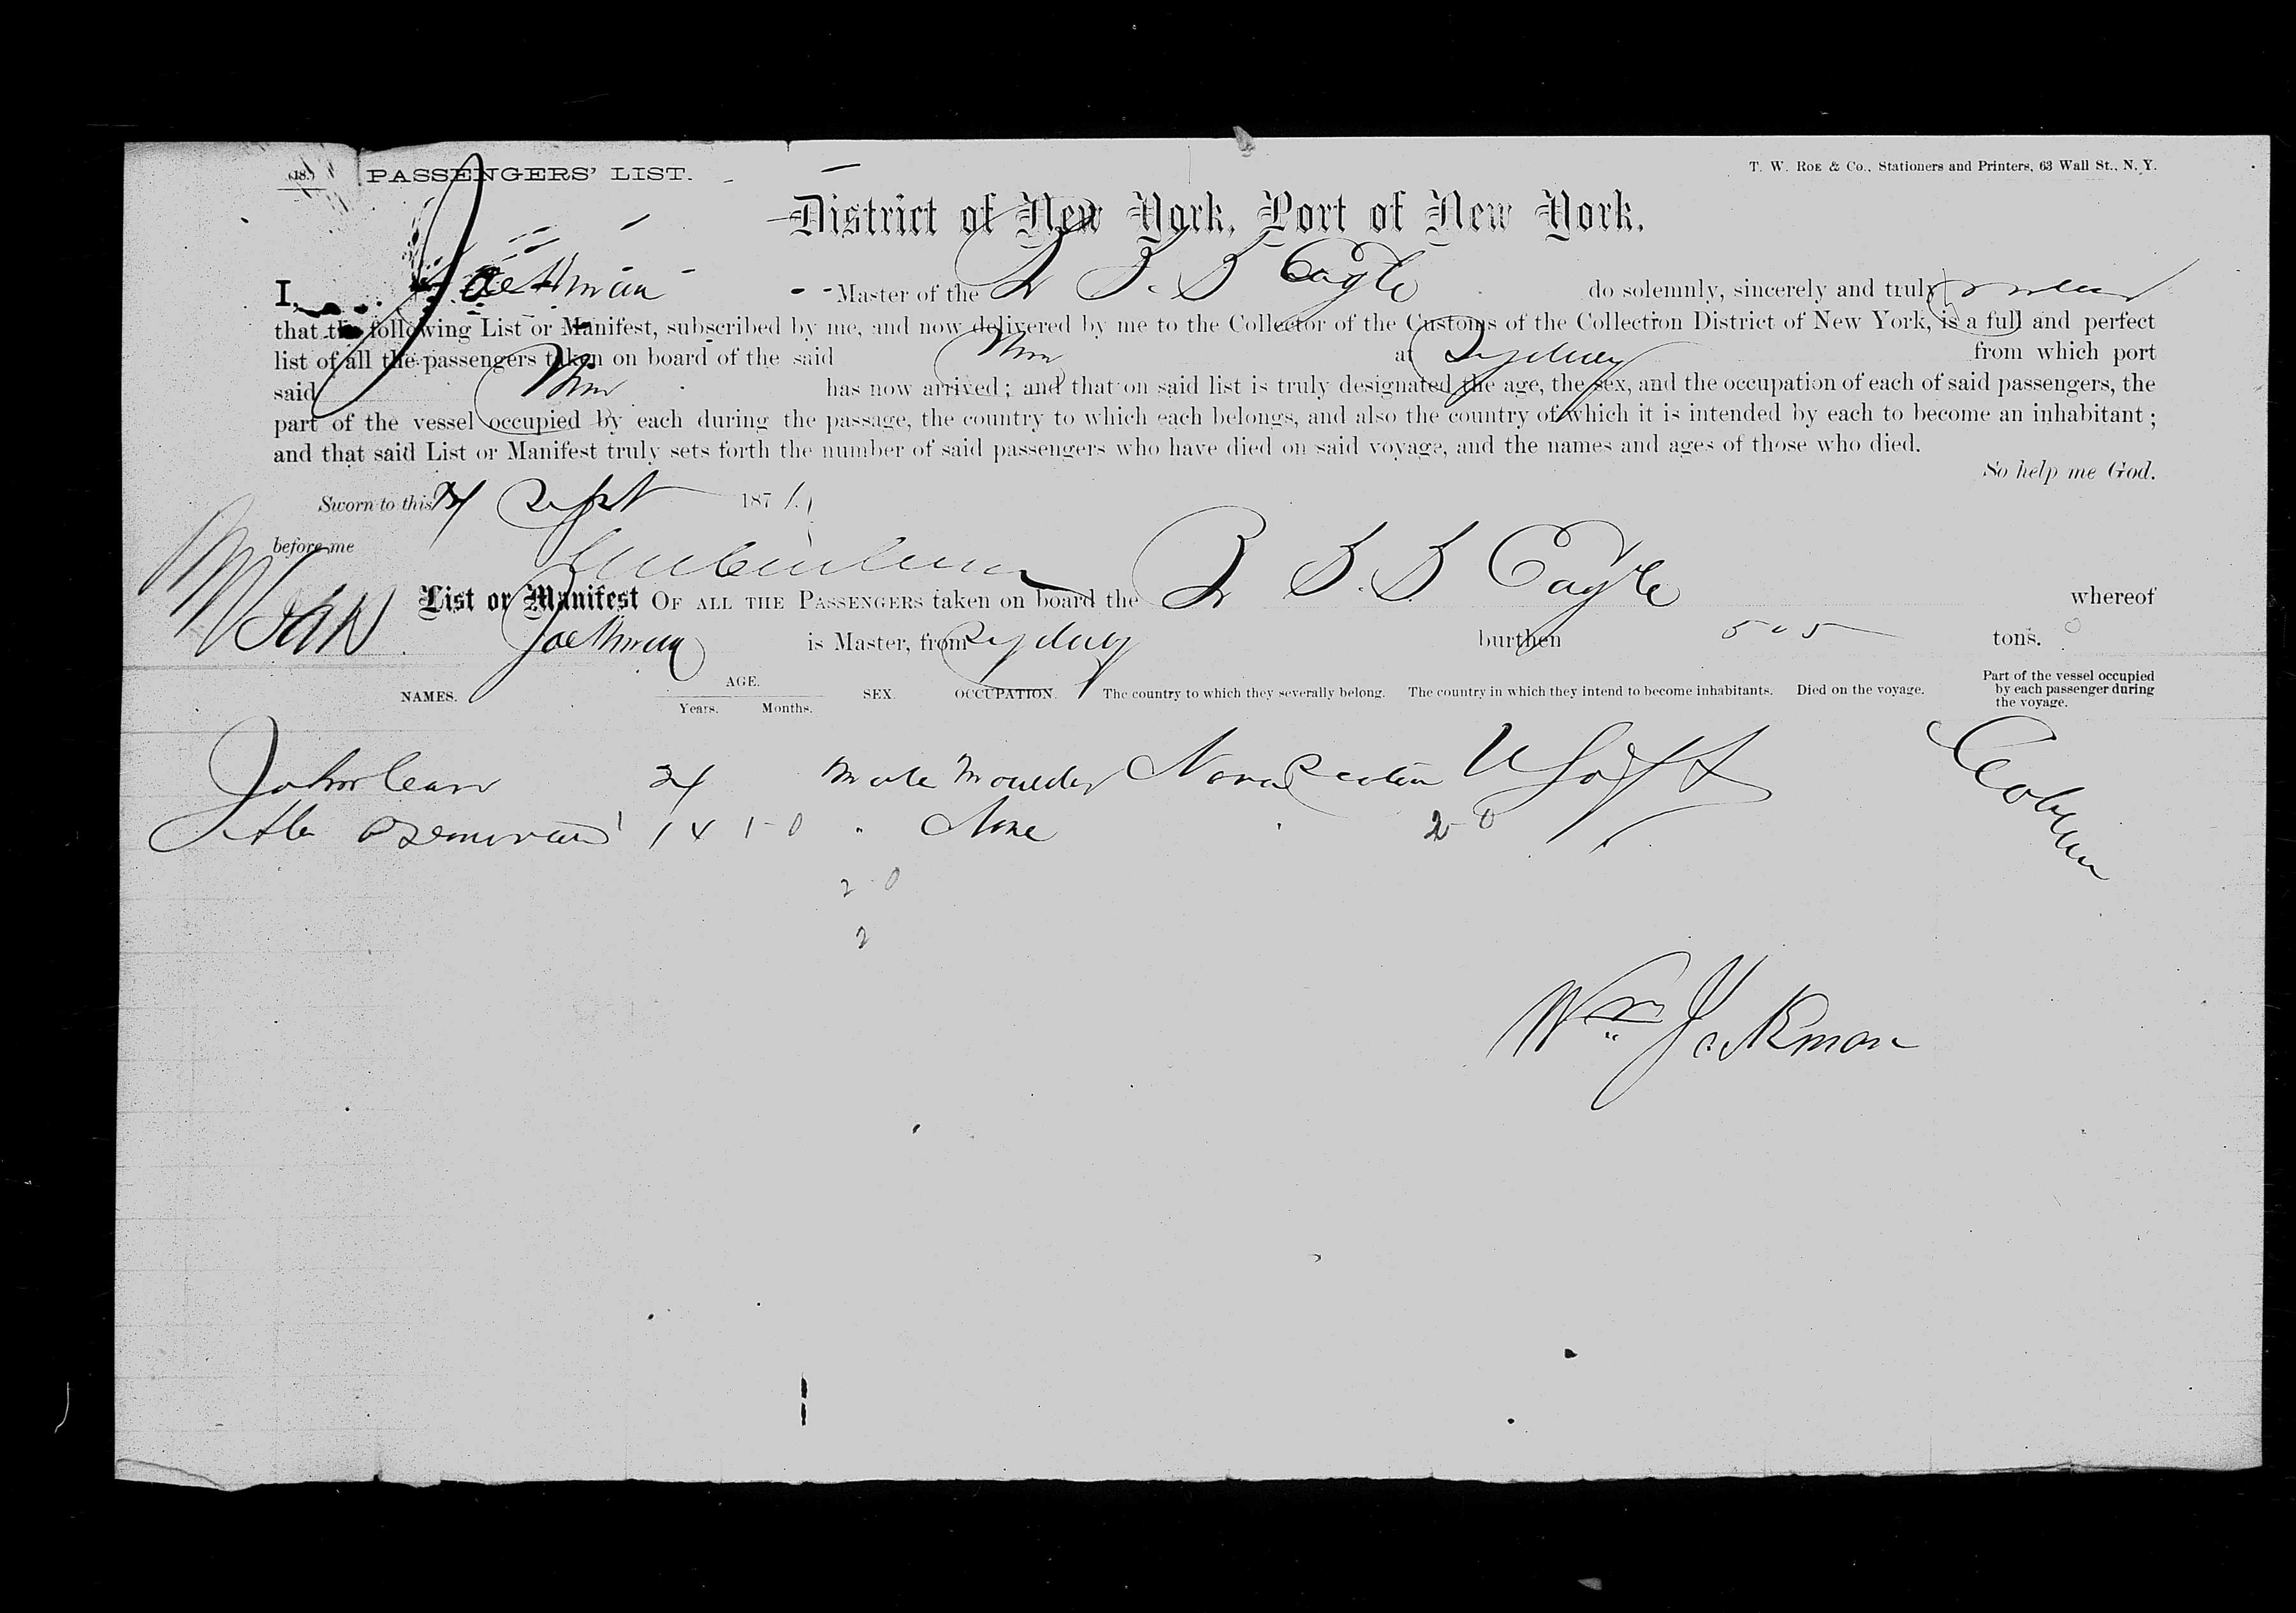 (18.) PASSENGERS' LIST.
T. W. ROE & Co., Stationers and Printers, 63 Wall St., N. Y.
District of New York, Port of New York.
I, Jackman Master of the Br S. S Eagle do solemnly, sincerely and truly swear
that the following List or Manifest, subscribed by me, and now delivered by me to the Collector of the Customs of the Collection District of New York, is a full and perfect
list of all the passengers taken on board of the said at Sydney from which port
said has now arrived; and that on said list is truly designated the age, the sex, and the occupation of each of said passengers, the
part of the vessel occupied by each during the passage, the country to which each belongs, and also the country of which it is intended by each to become an inhabitant;
and that said List or Manifest truly sets forth the number of said passengers who have died on said voyage, and the names and ages of those who died.
So help me God.
Sworn to this Sept 1871.
before me
List or Manifest OF ALL THE PASSENGERS taken on board the Br S. S Eagle whereof
Jackman is Master, from Sydney burthen 505 tons.
NAMES. AGE. Years. Months. SEX. OCCUPATION. The country to which they severally belong. The country in which they intend to become inhabitants. Died on the voyage. Part of the vessel occupied by each passenger during the voyage.
John 24 Male Moulder Nova Scotia U States Cabin
14 1-0 " None 2 0
2 0
2
Wm Jackman